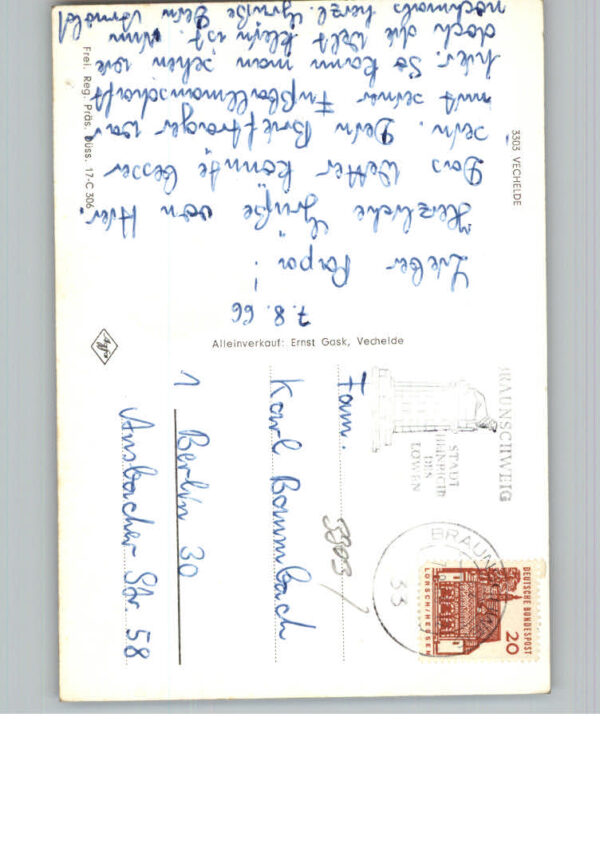 3303 VECHELDE
7.8.66
Lieber Papa!
Herzliche Grüße von Hier.
Das Wetter könnte besser
sein. Dein Briefträger war
mit seiner Fußballmannschaft
hier. So kann man sehen wie
doch die Welt klein ist. Nun
nochmals herzl. Grüße Dein Arnold
Frei. Reg. Präs. Düss. 17-C 306
Alleinverkauf: Ernst Gask, Vechelde
Agfa
BRAUNSCHWEIG
STADT
HEINRICH
DES
LÖWEN
BRAUNSCHWEIG
33
DEUTSCHE BUNDESPOST
20
LORSCH/HESSEN
Fam.
Karl Baumbach
3303
1 Berlin 30
Ansbacher Str. 58